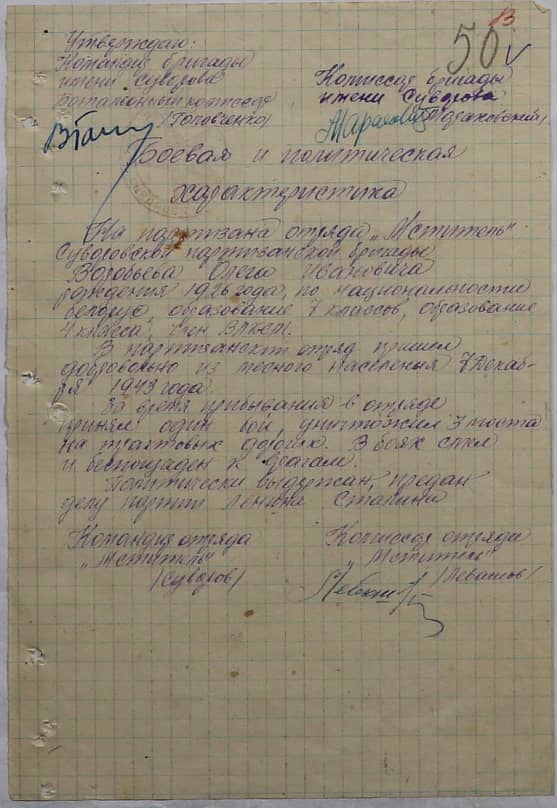 В
50
Утверждаю:
Командир бригады
имени Суворова
батальонный комиссар
/Головченко/
Комиссар бригады
имени Суворова
Боевая и политическая
характеристика
На партизана отряда „Мститель"
Суворовской партизанской бригады
Воробьева Олега Ивановича
рождения 1926 года, по национальности
белорус, образование 7 классов, образование
4 класса, член ВЛКСМ.
В партизанский отряд пришел
добровольно из местного населения 7 декаб-
ря 1943 года.
За время прибывания в отряде
принял один бой, уничтожил 3 моста
на трактовых дорогах. В боях смел
и беспощаден к врагам.
Политически выдержан, предан
делу партии Ленина Сталина
Командир отряда
„Мститель"
/Суворов/
Комиссар отряда
„Мститель"
/Левашов/